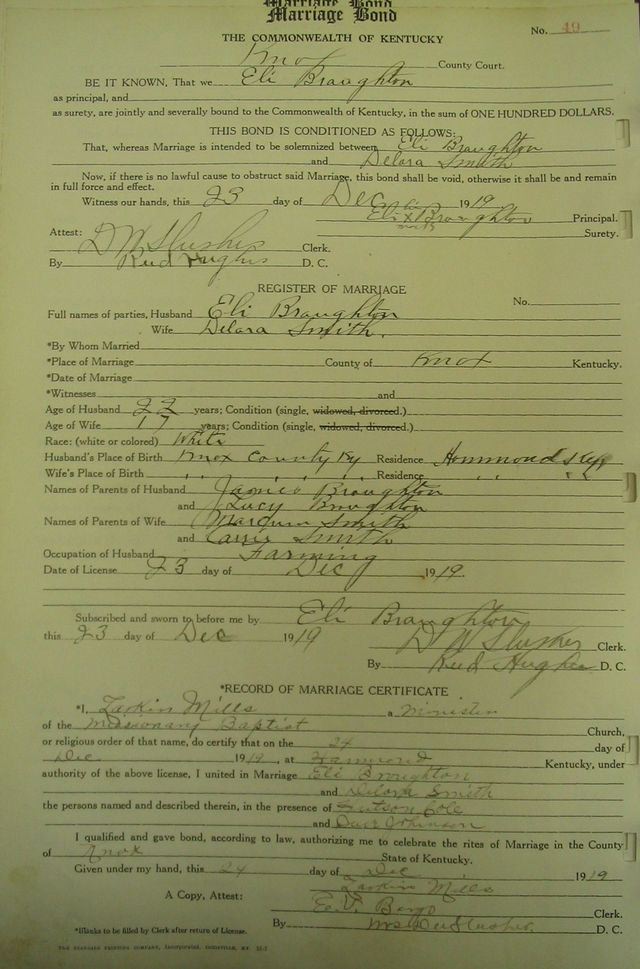 Marriage Bond
Marriage Bond
No. 49
THE COMMONWEALTH OF KENTUCKY
Knox County Court.
BE IT KNOWN, That we Eli Braughton
as principal, and
as surety, are jointly and severally bound to the Commonwealth of Kentucky, in the sum of ONE HUNDRED DOLLARS.
THIS BOND IS CONDITIONED AS FOLLOWS:
That, whereas Marriage is intended to be solemnized between Eli Braughton
and Delora Smith
Now, if there is no lawful cause to obstruct said Marriage, this bond shall be void, otherwise it shall be and remain
in full force and effect.
Witness our hands, this 23 day of Dec 1919
Eli x Braughton Principal.
Surety.
Attest: D W Slusher Clerk.
By Reed Hughes D. C.
REGISTER OF MARRIAGE
No.
Full names of parties, Husband Eli Braughton
Wife Delora Smith.
*By Whom Married
*Place of Marriage County of Knox Kentucky.
*Date of Marriage
*Witnesses and
Age of Husband 22 years; Condition (single, widowed, divorced.)
Age of Wife 17 years; Condition (single, widowed, divorced.)
Race: (white or colored) White
Husband's Place of Birth Knox County Ky Residence Hammonds Ky
Wife's Place of Birth " " " " Residence " "
Names of Parents of Husband James Braughton
and Lucy Braughton
Names of Parents of Wife Smith
and Carrie Smith
Occupation of Husband Farming
Date of License 23 day of Dec 1919.
Subscribed and sworn to before me by Eli Braughton
this 23 day of Dec 1919 D W Slusher Clerk.
By Reed Hughes D. C.
*RECORD OF MARRIAGE CERTIFICATE
*I, Larkin Mills a Minister
of the Missionary Baptist Church,
or religious order of that name, do certify that on the 24 day of
Dec 1919, at Hammond Kentucky, under
authority of the above license, I united in Marriage Eli Broughton
and Delora Smith
the persons named and described therein, in the presence of Cole
and Johnson
I qualified and gave bond, according to law, authorizing me to celebrate the rites of Marriage in the County
of Knox State of Kentucky.
Given under my hand, this 24 day of Dec 1919
Larkin Mills
A Copy, Attest: Clerk.
By Slusher. D. C.
*Blanks to be filled by Clerk after return of License.
THE STANDARD PRINTING COMPANY, Incorporated, LOUISVILLE, KY.